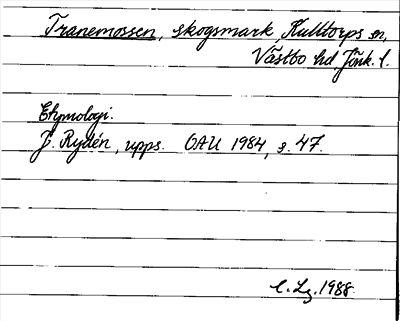 Tranemossen, skogsmark, Kulltorps sn,
Västbo hd, Jönk. l.
Etymologi.
J. Rydén, upps. OAU 1984, s. 47.
C. Lg. 1988.